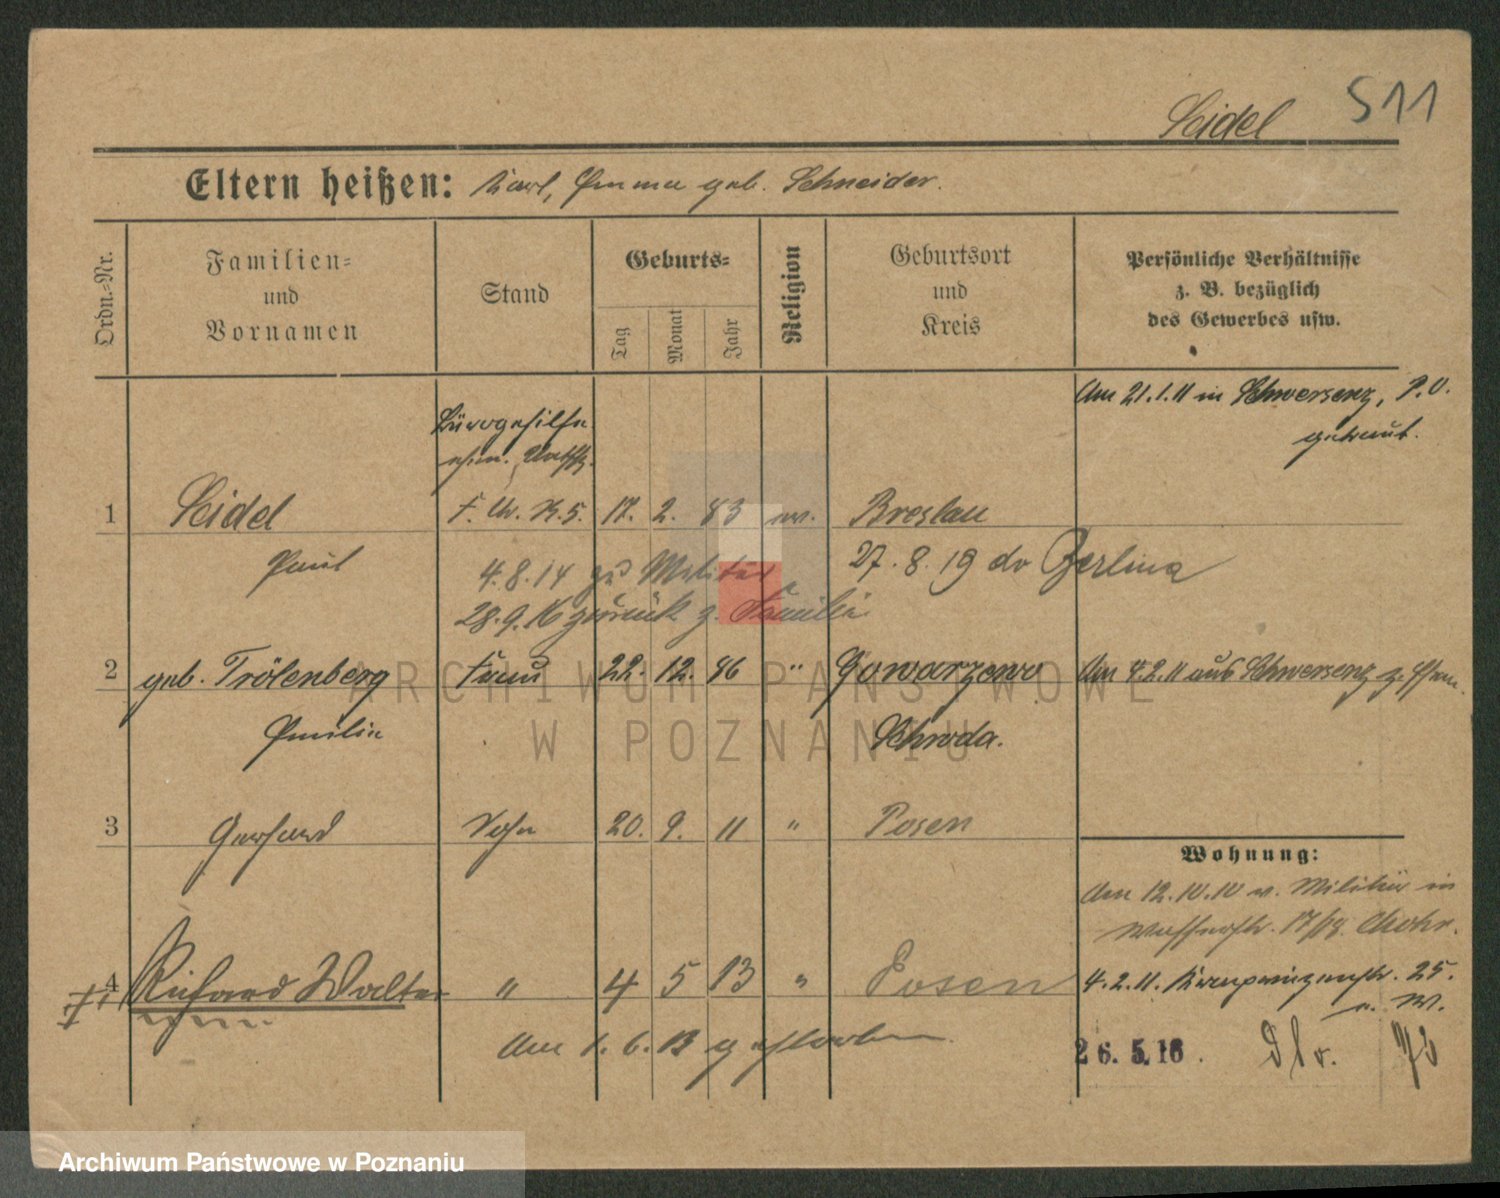 511
Seidel
Eltern heißen: Karl, Emma geb. Schneider.
Ordn.-Nr.
Familien-
und
Vornamen
Stand
Geburts-
Tag
Monat
Jahr
Religion
Geburtsort
und
Kreis
Persönliche Verhältnisse
z. B. bezüglich
des Gewerbes usw.
Am 21.1.11 in Schwersenz, P.O.
getraut.
Bürogehilfe
ehem.
1 Seidel 17. 2. 83 ev. Breslau
Paul
4.8.14 zu Militär
27.8.19 Berlin
28.9.16 zurück z. Familie
2 geb. Trölenberg Frau 22. 12. 86 " Gowarzewo Am 4.2.11 aus Schwersenz
Emilie Schroda.
3 Gerhard Sohn 20. 9. 11 " Posen
Wohnung:
Am 12.10.10 v. Militär in
17/18.
4 Richard Walter " 4 5 13 " Posen 4.2.11. Kronprinzenstr. 25.
Am 1.6.13 gestorben
26.5.16.
ARCHIWUM PAŃSTWOWE
W POZNANIU
Archiwum Państwowe w Poznaniu